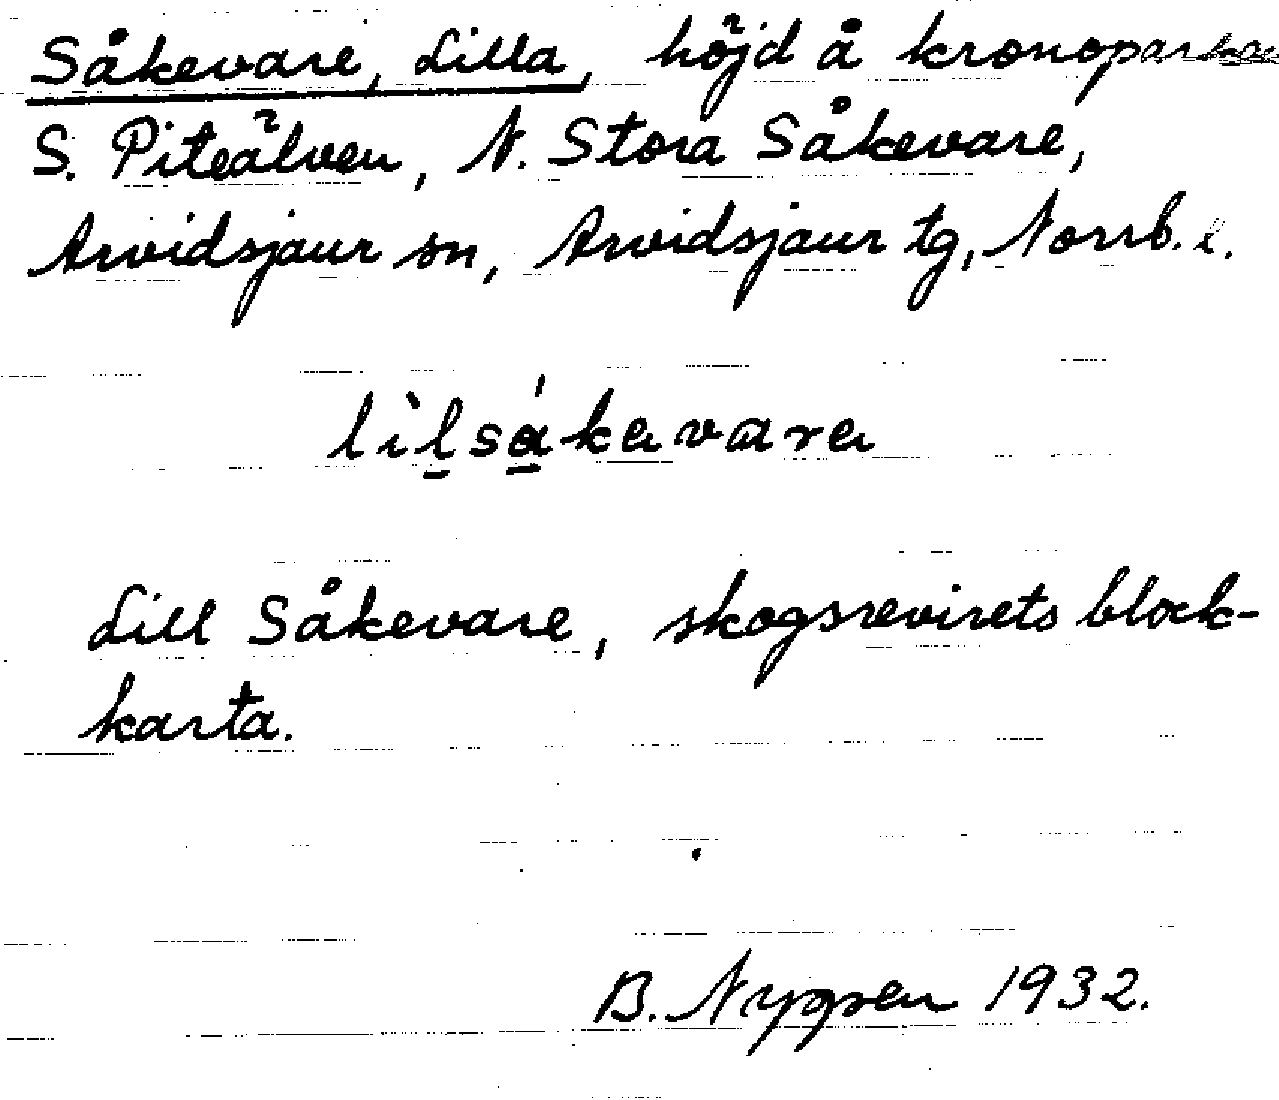 Såkevare, Lilla, höjd å kronoparken
S. Piteälven, N. Stora Såkevare,
Arvidsjaur sn, Arvidsjaur tg, Norrb. l.
lìl̠sá̠kavara
Lill Såkevare, skogsrevirets block-
karta.
B. Nygren 1932.